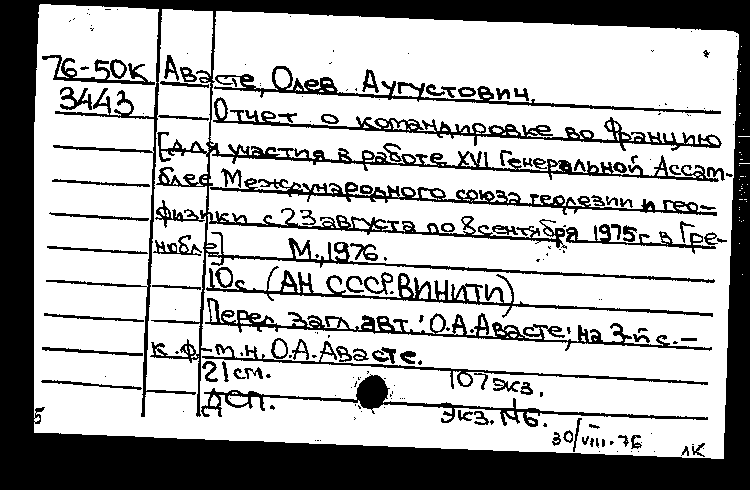 76-50к Авасте, Олев Аугустович.
3443 Отчет о командировке во Францию
[для участия в работе XVI Генеральной Ассам-
блее Международного союза геодезии и гео-
физики с 23 августа по 8 сентября 1975г. в Гре-
нобле] М., 1976.
10с. (АН СССР. ВИНИТИ).
Перед загл. авт.: О.А. Авасте; на 3-й с. —
к.ф.-м.н. О.А. Авасте.
21 см. 107 экз.
ДСП. Экз. №6.
30/VIII.76 лк